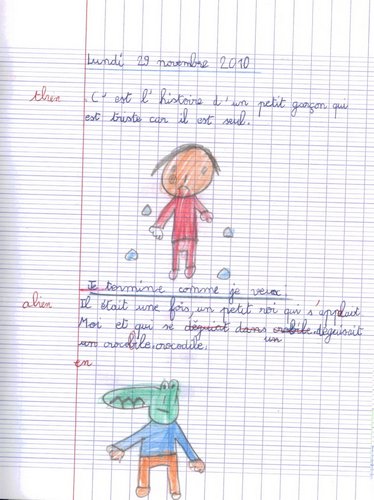 Lundi 29 novembre 2010
tbien C'est l'histoire d'un petit garçon qui
est triste car il est seul.
Je termine comme je veux
abien Il était une fois, un petit roi qui s'applait
Moi et qui se déguisait
un
crocodile.
en